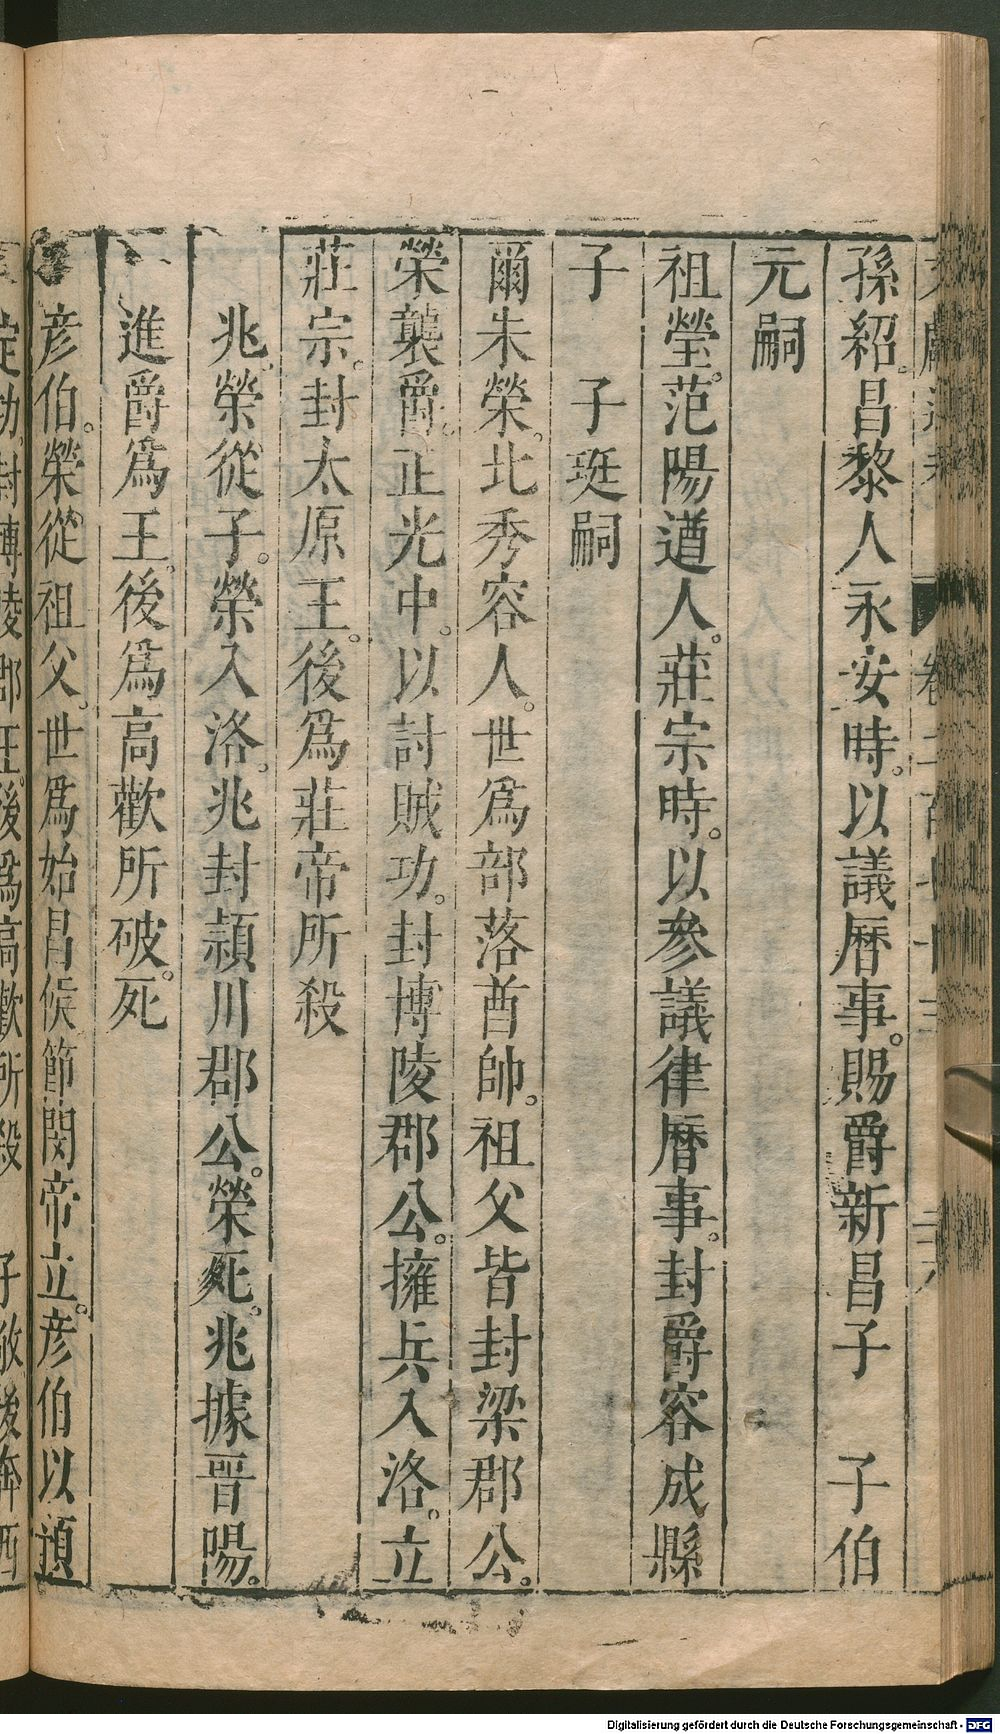 孫紹。昌黎人永安時。以議曆事。賜爵新昌子　子伯
元嗣
祖瑩。范陽遒人。莊宗時。以參議律曆事。封爵容成縣
子　子珽嗣
爾朱榮。北秀容人。世爲部落酋帥。祖父皆封梁郡公。
榮襲爵。正光中。以討賊功。封博陵郡公。擁兵入洛。立
莊宗。封太原王。後爲莊帝所殺
兆。榮從子。榮入洛。兆封潁川郡公。榮死。兆據晋陽。
進爵爲王。後爲高歡所破。死
彦伯。榮從祖父。世爲始昌侯節閔帝立。彦伯以預
定勛。封博陵郡王。後爲高歡所殺　子敞後奔西
Digitalisierung gefördert durch die Deutsche Forschungsgemeinschaft - DFG